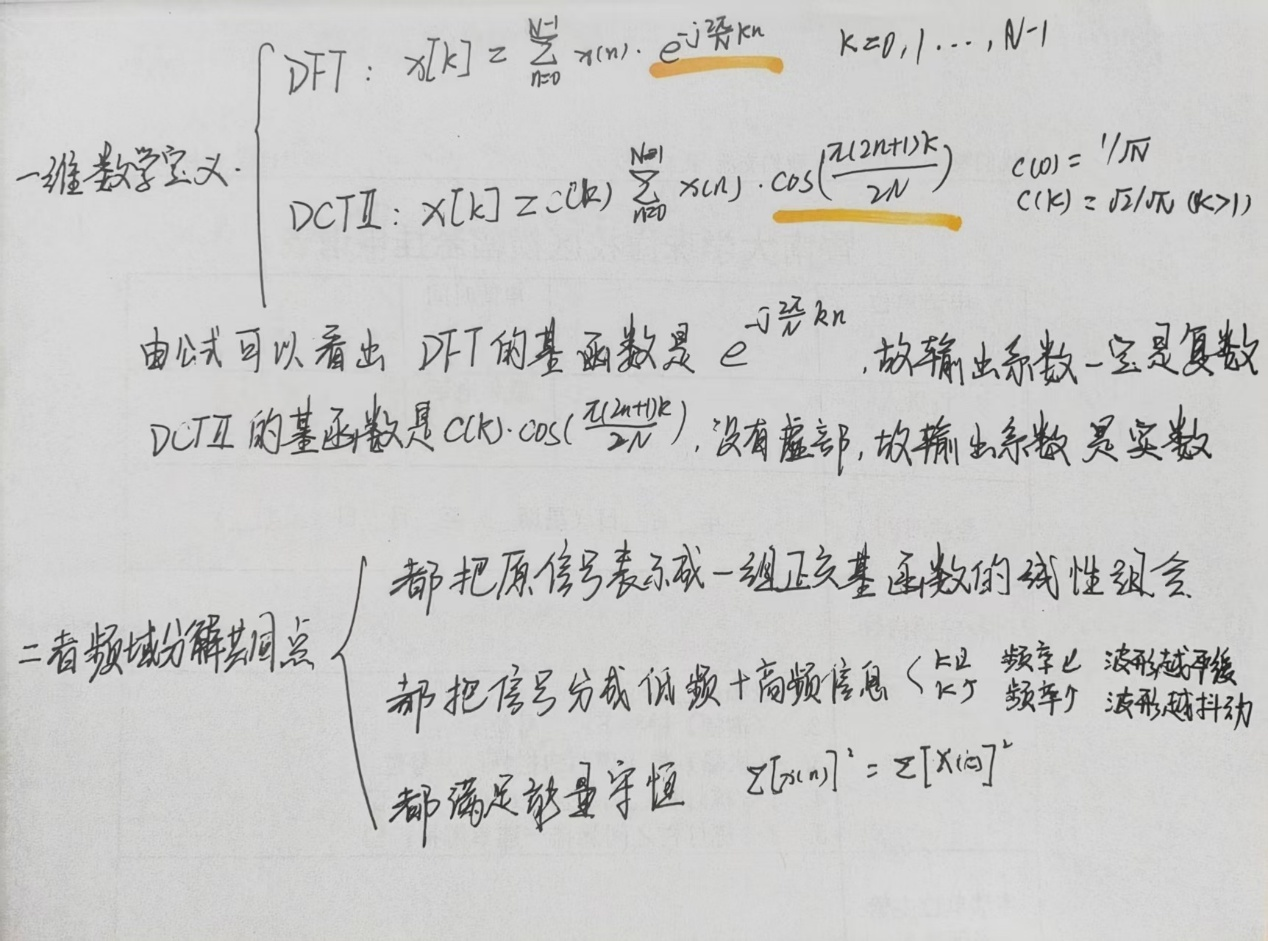 DFT: x[k] = Σ_{n=0}^{N-1} x(n)·e^{-j\frac{2π}{N}kn} k=0,1...,N-1
一维数学定义.
DCTⅡ: x[k] = c(k) Σ_{n=0}^{N-1} x(n)·cos(\frac{π(2n+1)k}{2N}) c(0) = 1/√N
c(k) = √2/√N (k>1)
由公式可以看出 DFT的基函数是 e^{-j\frac{2π}{N}kn},故输出系数一定是复数
DCTⅡ的基函数是C(k)·cos(\frac{π(2n+1)k}{2N}),没有虚部,故输出系数是实数
都把原信号表示成一组正交基函数的线性组合
二者频域分解共同点
都把信号分成低频+高频信息 k 频率 波形越平缓
k 频率 波形越抖动
都满足能量守恒 Σ[x(n)]² = Σ[X(k)]²